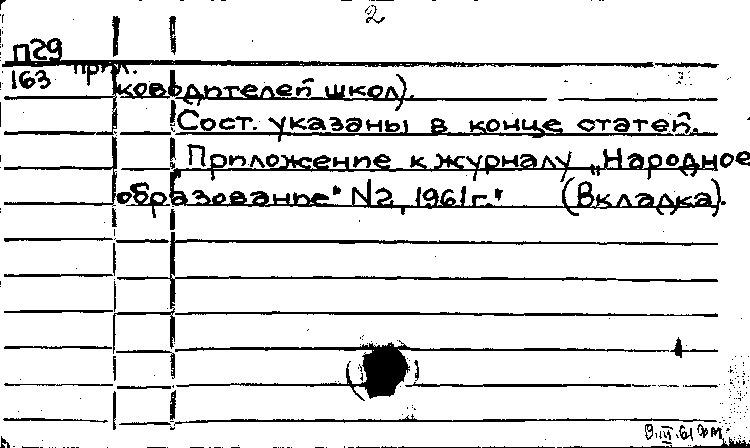 2
П29
163 прил.
ководителей школ).
(Сост. указаны в конце статей.
„Приложение к журналу „Народное
образование" №2, 1961г." (Вкладка).